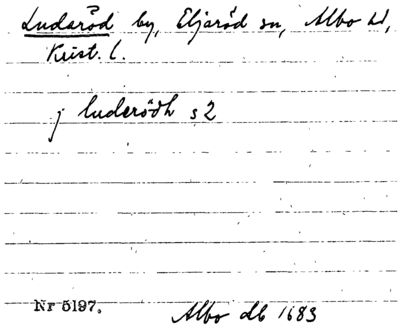 Ludaröd by, Eljaröd sn, Albo hd,
Krist. l.
j luderödh s 2
Nr 5197.
Albo db 1683